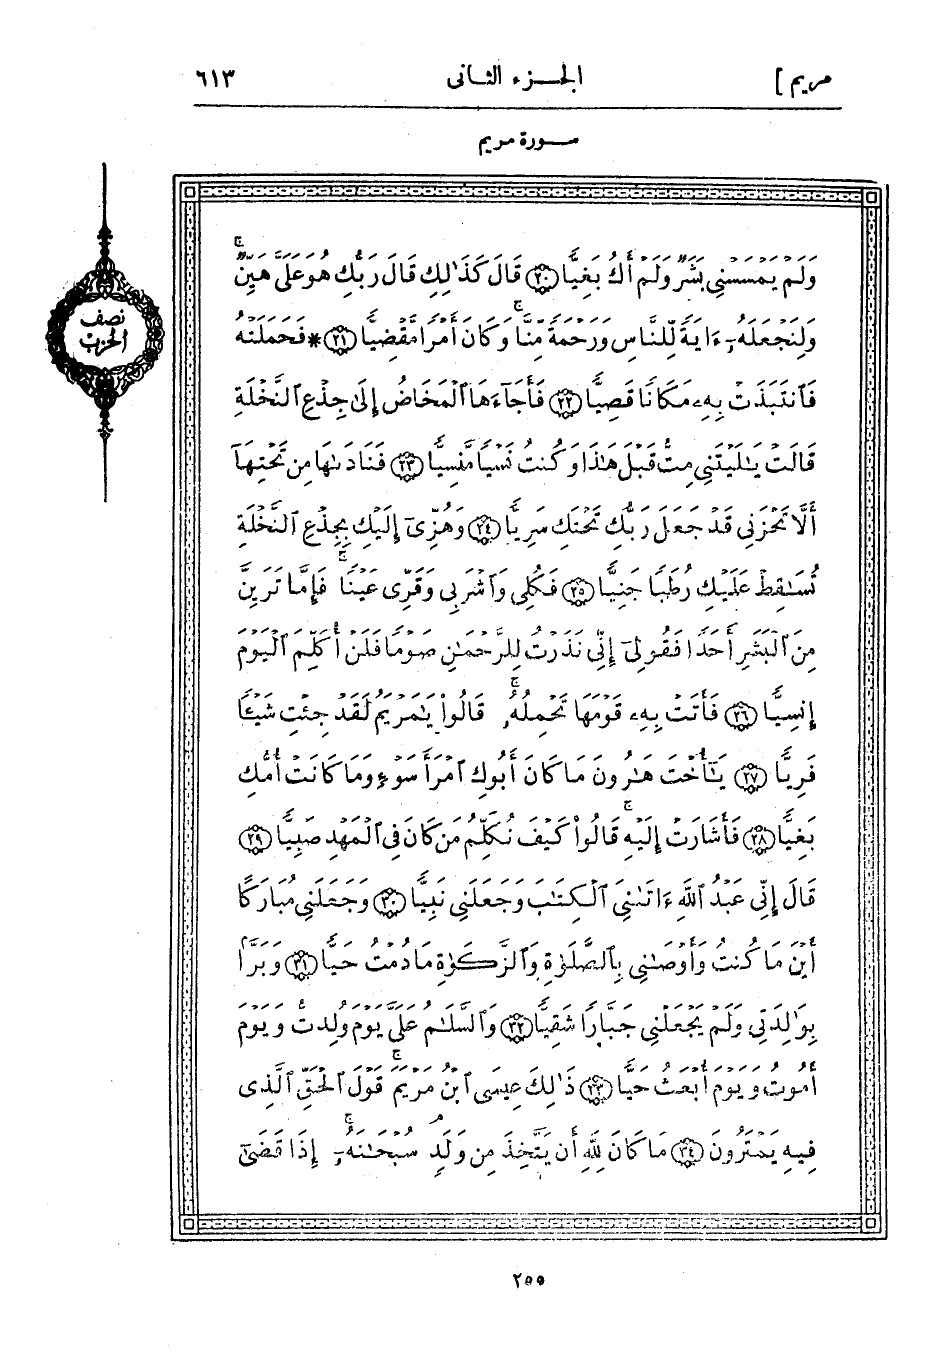 مريم ]
الجزء الثانى
٦١٣
سورة مريم
نصف
الحزب
وَلَمْ يَمْسَسْنِى بَشَرٌ وَلَمْ أَكُ بَغِيًّا ﴿٢٠﴾ قَالَ كَذَٰلِكِ قَالَ رَبُّكِ هُوَ عَلَىَّ هَيِّنٌۖ
وَلِنَجْعَلَهُۥٓ ءَايَةً لِّلنَّاسِ وَرَحْمَةً مِّنَّاۚ وَكَانَ أَمْرًا مَّقْضِيًّا ﴿٢١﴾ * فَحَمَلَتْهُ
فَٱنتَبَذَتْ بِهِۦ مَكَانًا قَصِيًّا ﴿٢٢﴾ فَأَجَآءَهَا ٱلْمَخَاضُ إِلَىٰ جِذْعِ ٱلنَّخْلَةِ
قَالَتْ يَٰلَيْتَنِى مِتُّ قَبْلَ هَٰذَا وَكُنتُ نَسْيًا مَّنسِيًّا ﴿٢٣﴾ فَنَادَىٰهَا مِن تَحْتِهَآ
أَلَّا تَحْزَنِى قَدْ جَعَلَ رَبُّكِ تَحْتَكِ سَرِيًّا ﴿٢٤﴾ وَهُزِّىٓ إِلَيْكِ بِجِذْعِ ٱلنَّخْلَةِ
تُسَٰقِطْ عَلَيْكِ رُطَبًا جَنِيًّا ﴿٢٥﴾ فَكُلِى وَٱشْرَبِى وَقَرِّى عَيْنًاۚ فَإِمَّا تَرَيِنَّ
مِنَ ٱلْبَشَرِ أَحَدًا فَقُولِىٓ إِنِّى نَذَرْتُ لِلرَّحْمَٰنِ صَوْمًا فَلَنْ أُكَلِّمَ ٱلْيَوْمَ
إِنسِيًّا ﴿٢٦﴾ فَأَتَتْ بِهِۦ قَوْمَهَا تَحْمِلُهُۥۚ قَالُوا۟ يَٰمَرْيَمُ لَقَدْ جِئْتِ شَيْـًٔا
فَرِيًّا ﴿٢٧﴾ يَٰٓأُخْتَ هَٰرُونَ مَا كَانَ أَبُوكِ ٱمْرَأَ سَوْءٍ وَمَا كَانَتْ أُمُّكِ
بَغِيًّا ﴿٢٨﴾ فَأَشَارَتْ إِلَيْهِۚ قَالُوا۟ كَيْفَ نُكَلِّمُ مَن كَانَ فِى ٱلْمَهْدِ صَبِيًّا ﴿٢٩﴾
قَالَ إِنِّى عَبْدُ ٱللَّهِ ءَاتَىٰنِىَ ٱلْكِتَٰبَ وَجَعَلَنِى نَبِيًّا ﴿٣٠﴾ وَجَعَلَنِى مُبَارَكًا
أَيْنَ مَا كُنتُ وَأَوْصَٰنِى بِٱلصَّلَوٰةِ وَٱلزَّكَوٰةِ مَا دُمْتُ حَيًّا ﴿٣١﴾ وَبَرًّۢا
بِوَٰلِدَتِى وَلَمْ يَجْعَلْنِى جَبَّارًا شَقِيًّا ﴿٣٢﴾ وَٱلسَّلَٰمُ عَلَىَّ يَوْمَ وُلِدتُّ وَيَوْمَ
أَمُوتُ وَيَوْمَ أُبْعَثُ حَيًّا ﴿٣٣﴾ ذَٰلِكَ عِيسَى ٱبْنُ مَرْيَمَۚ قَوْلَ ٱلْحَقِّ ٱلَّذِى
فِيهِ يَمْتَرُونَ ﴿٣٤﴾ مَا كَانَ لِلَّهِ أَن يَتَّخِذَ مِن وَلَدٍۖ سُبْحَٰنَهُۥٓۚ إِذَا قَضَىٰٓ
٢٥٥